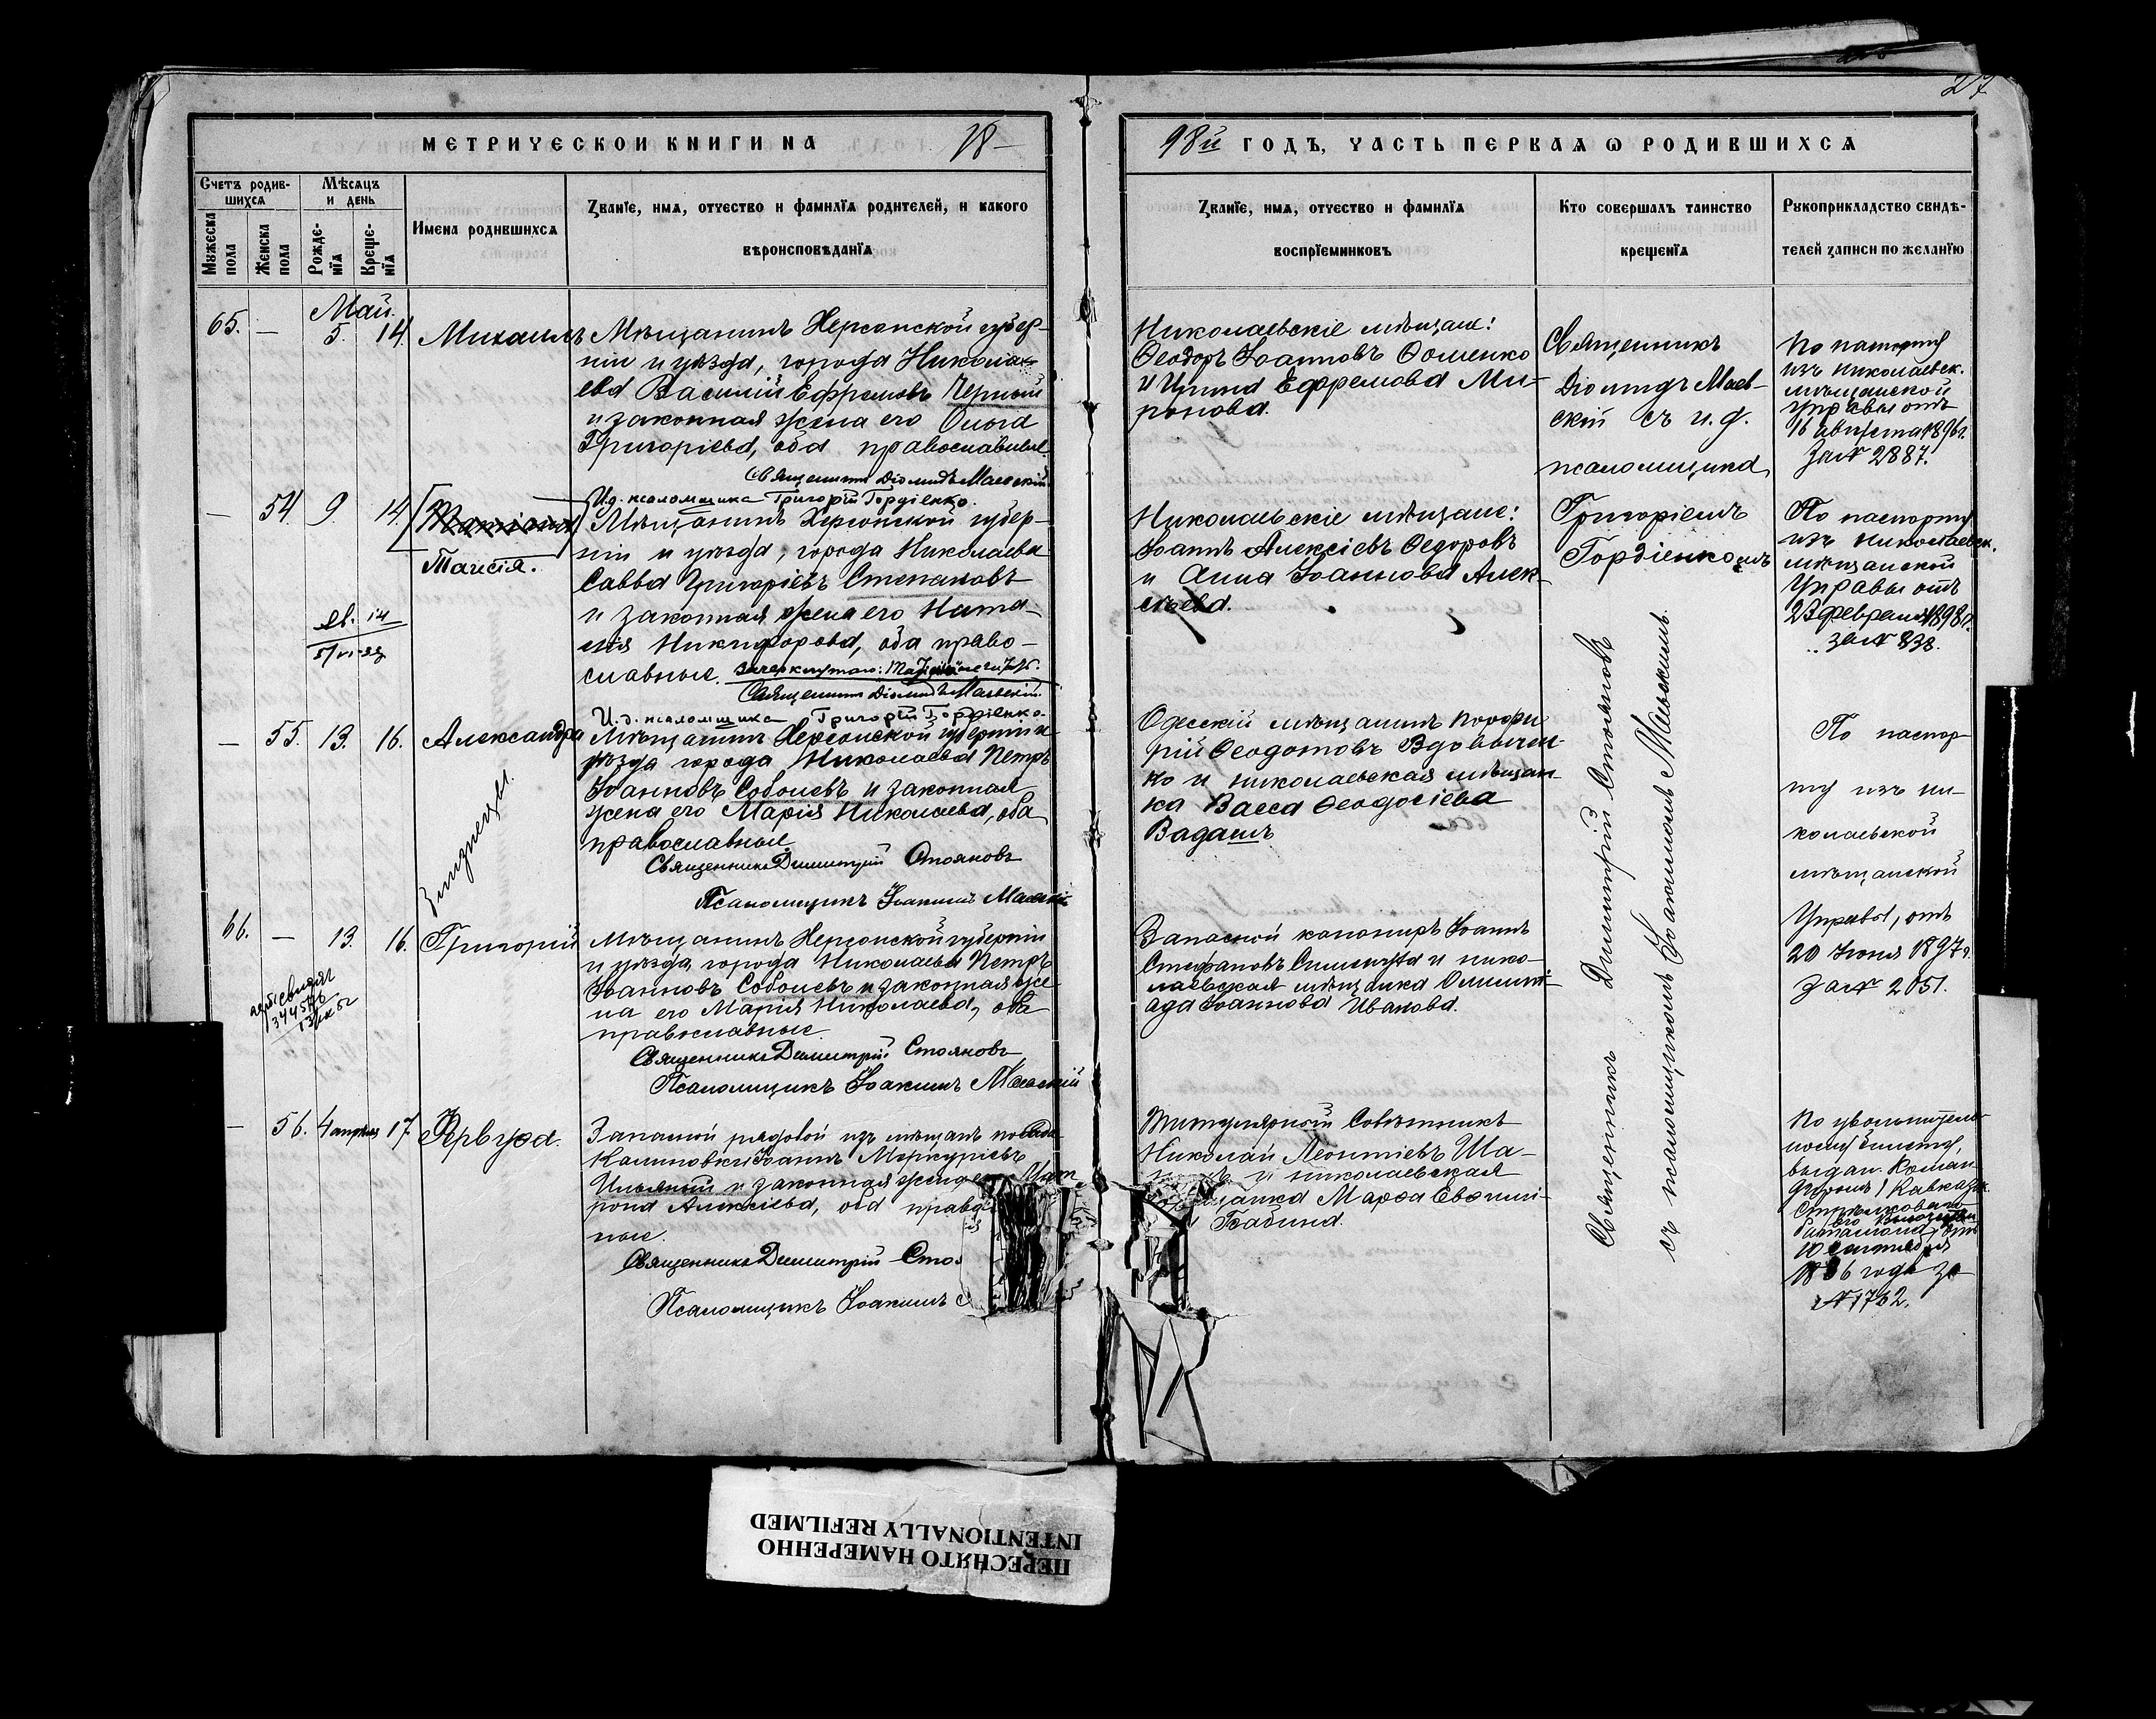 27
МЕТРИЧЕСКОЙ КНИГИ НА 18
98й ГОДЪ, ЧАСТЬ ПЕРВАЯ Ѡ РОДИВШИХСЯ
Счетъ родив-
шихся
Мѣсяцъ
и день
Мужеска
пола
Женска
пола
Рожде-
нїя
Креще-
нїя
Имена родившихся
Званїе, имя, отчество и фамилїя родителей, и какого
вѣроисповѣданїя
Званїе, имя, отчество и фамилїя
воспрїемниковъ
Кто совершалъ таинство
крещенїя
Рукоприкладство свидѣ-
телей записи по желанїю
Май.
65. — 5. 14. Михаилъ
Мѣщанинъ Херсонской губер-
ніи и уѣзда, города Никола-
ева Василій Ефремовъ Черный
и законная жена его Ольга
Григоріева, оба православные
Священникъ Діомидъ Маевскій
И.д. псаломщика Григорій Гордіенко.
Николаевскіе мѣщане:
Ѳеодоръ Іоанновъ Ѳоменко
и Ирина Ефремова Ми-
ронова.
Священникъ
Діомидъ Маев-
скій съ и.д.
псаломщика
Григоріемъ
Гордіенкомъ
По паспорту
изъ Николаевск.
мѣщанской
управы отъ
16 августа 1896 г.
За № 2887.
— 54. 9. 14.
Таисія.
Мѣщанинъ Херсонской губер-
ніи и уѣзда, города Николаева
Савва Григоріевъ Степановъ
и законная жена его Ната-
лія Никифорова, оба право-
славные.
Священникъ Діомидъ Маевскій.
И.д. псаломщика Григорій Гордіенко.
Николаевскіе мѣщане:
Іоаннъ Алексіевъ Ѳедоровъ
и Анна Іоаннова Алек-
сѣева.
По паспорту
изъ Николаевск.
мѣщанской
Управы отъ
23 февраля 1898 г.
за № 838.
— 55. 13. 16. Александра
Близнецы.
Мѣщанинъ Херсонской губерніи и
уѣзда города Николаева Петръ
Іоанновъ Соболевъ и законная
жена его Марія Николаева, оба
православные.
Священникъ Димитрій Стояновъ
Псаломщикъ Іоакимъ Маевскій
Одесскій мѣщанинъ Порфи-
рій Ѳеодотовъ Вдовычен-
ко и николаевская мѣщан-
ка Васса Ѳеодосіева
Вадашъ
Священникъ Димитрій Стояновъ
съ псаломщикомъ Іоакимомъ Маевскимъ.
По паспор-
ту изъ ни-
колаевской
мѣщанской
Управы, отъ
20 Іюня 1897 г.
За № 2051.
66. — 13. 16. Григорій
Мѣщанинъ Херсонской губерніи
и уѣзда, города Николаева Петръ
Іоанновъ Соболевъ и законная же-
на его Марія Николаева, оба
православные.
Священникъ Димитрій Стояновъ
Псаломщикъ Іоакимъ Маевскій
Запасной канониръ Іоаннъ
Стефановъ и нико-
лаевская мѣщанка Олимпі-
ада Іоаннова Иванова.
— 56. 4 апрѣля 17.
Запасной рядовой изъ мѣщанъ посада
Калиновки Іоаннъ Меркуріевъ
Ильяной и законная жена его Мат
рона Алексіева, оба правос
ные.
Священникъ Димитрій Сто
Псаломщикъ Іоакимъ
Титулярный Совѣтникъ
Николай Леонтіевъ Ша-
и николаевская
щанка Марѳа Евѳимі-
Бабина.
По увольнитель-
ному билету,
выдан. Коман-
диромъ 1 Кавказск.
Стрѣлковаго
отъ
10 сентября
1886 года за
№ 1762.
ПЕРЕСНЯТО НАМЕРЕННО
INTENTIONALLY REFILMED